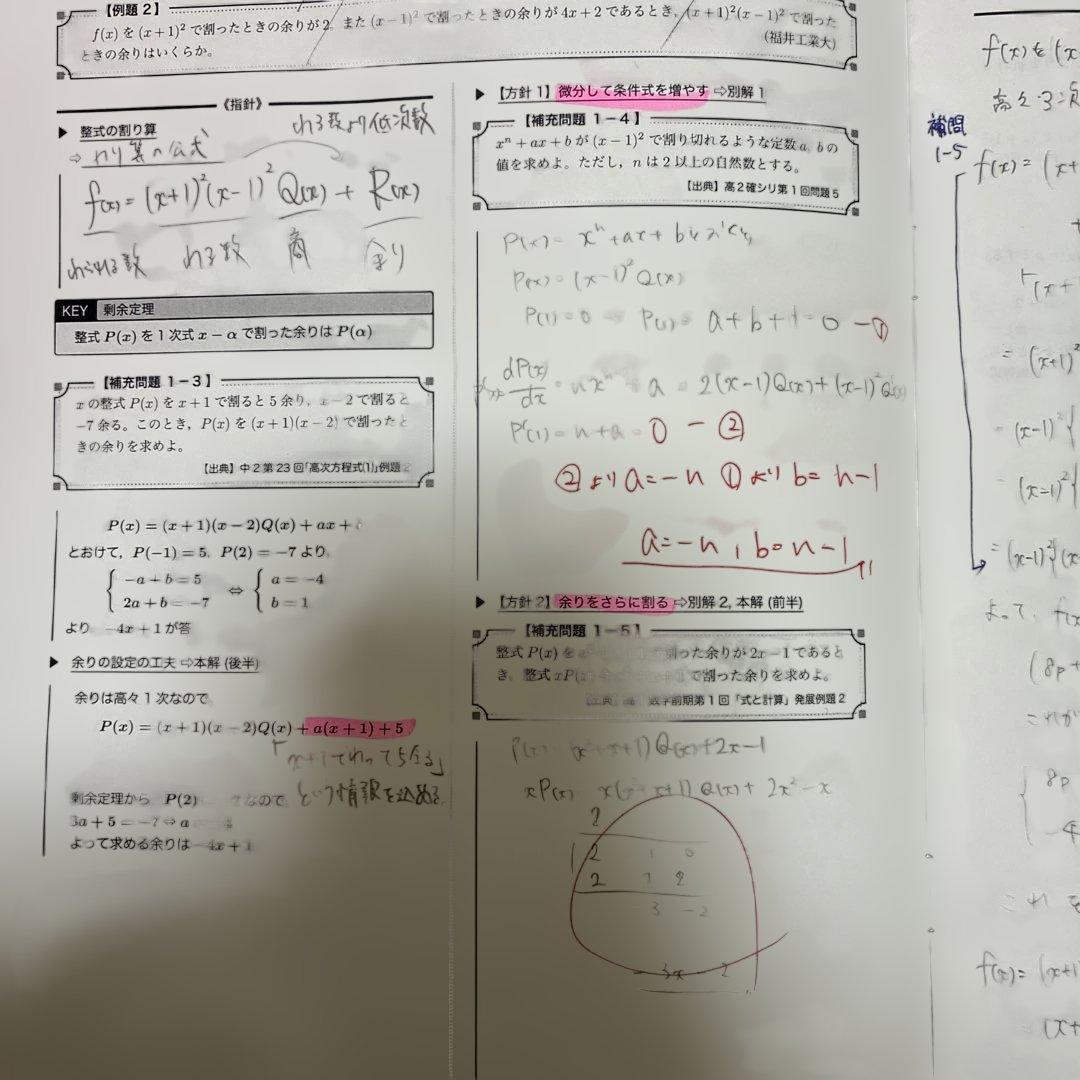 【例題2】
f(x) を (x+1)² で割ったときの余りが 2, また (x−1)² で割ったときの余りが 4x+2 であるとき, (x+1)²(x−1)² で割った
ときの余りはいくらか。
(福井工業大)
《指針》
▶ 整式の割り算
わる数より低次数
⇨ わり算の公式
f(x)=(x+1)²(x−1)²Q(x)+R(x)
わられる数 わる数 商 余り
KEY 剰余定理
整式 P(x) を 1 次式 x−α で割った余りは P(α)
【補充問題 1−3】
x の整式 P(x) を x+1 で割ると 5 余り, x−2 で割ると
−7 余る。このとき, P(x) を (x+1)(x−2) で割ったと
きの余りを求めよ。
【出典】中2第23回「高次方程式(1)」例題2
P(x) = (x+1)(x−2)Q(x) + ax +
とおけて, P(−1) = 5, P(2) = −7 より,
−a + b = 5 ⇔ a = −4
2a + b = −7 b = 1
より −4x + 1 が答
▶ 余りの設定の工夫 ⇨本解 (後半)
余りは高々 1 次なので
P(x) = (x+1)(x−2)Q(x) + a(x+1) + 5
「x+1でわって5余る」
という情報を込める
剰余定理から P(2) なので
3a + 5 = −7 ⇔ a
よって求める余りは −4x + 1
▶ 【方針 1】 微分して条件式を増やす ⇨別解 1
【補充問題 1−4】
xⁿ + ax + b が (x−1)² で割り切れるような定数 a, b の
値を求めよ。ただし, n は 2 以上の自然数とする。
【出典】高2確シリ第1回問題5
P(x) = xⁿ+ax+b
P(x) = (x−1)²Q(x)
P(1)=0 P(1)= a+b+1=0 −①
dP(x)/dx = nxⁿ a = 2(x−1)Q(x)+(x−1)²Q'(x)
P'(1)=n+a=0 − ②
②より a=−n ①より b=n−1
a=−n, b=n−1
▶ 【方針 2】 余りをさらに割る ⇨別解 2, 本解 (前半)
【補充問題 1−5】
整式 P(x) を 割った余りが 2x−1 であると
き, 整式 xP(x) で割った余りを求めよ。
数学前期第1回「式と計算」発展例題2
P(x) (x²+x+1)Q(x)+2x−1
xP(x) x(x²+x+1)Q(x)+2x²−x
2
2 1 0
2 2
3 −2
−3x − 2
f(x)を(x
高々3次
補問
1-5
f(x) = (x+
「(x+
= (x+1)²
= (x−1)²{
(x−1)²{
= (x−1)²{(x
よって, f(x
(8p+
これが
8p
−4
これを
f(x)= (x+1
(x+